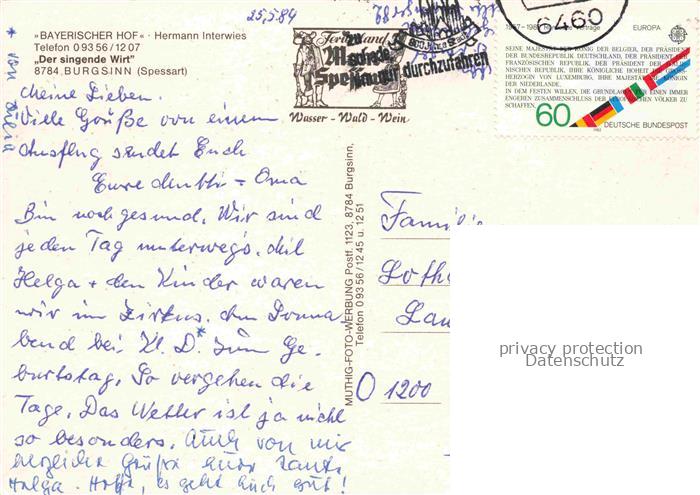 25.5.84
»BAYERISCHER HOF« · Hermann Interwies
Telefon 0 93 56 / 12 07
„Der singende Wirt“
8784 BURGSINN (Spessart)
Meine Lieben.
Viele Grüße von einem
Ausflug sendet Euch
Eure - Oma
Bin noch gesund. Wir sind
jeden Tag unterwegs. Mit
Helga + den Kinder waren
wir im Zirkus. Am Sonna
bend bei Kl. D.* zum Ge-
burtstag. So vergehen die
Tage. Das Wetter ist ja nicht
so besonders. Auch von mir
herzliche Grüße Eure Tante
Helga. Hoffe, es geht Euch gut!
* von
Ferienland
Main
Spessart
durchzufahren
Wasser - Wald - Wein
6460
EUROPA
SEINE MAJESTÄT DER KÖNIG DER BELGIER, DER PRÄSIDENT
DER BUNDESREPUBLIK DEUTSCHLAND, DER PRÄSIDENT DER
FRANZÖSISCHEN REPUBLIK, DER PRÄSIDENT DER ITALIE-
NISCHEN REPUBLIK, IHRE KÖNIGLICHE HOHEIT DIE GROSS-
HERZOGIN VON LUXEMBURG, IHRE MAJESTÄT DIE KÖNIGIN
DER NIEDERLANDE,
IN DEM FESTEN WILLEN, DIE GRUNDLAGEN FÜR EINEN IMMER
ENGEREN ZUSAMMENSCHLUSS DER EUROPÄISCHEN VÖLKER ZU
SCHAFFEN
60
1982
DEUTSCHE BUNDESPOST
MUTHIG-FOTO-WERBUNG Postf. 1123, 8784 Burgsinn,
Telefon 0 93 56 / 12 45 u. 12 51
Familie
Lotha
Lau
O 1200
privacy protection
Datenschutz